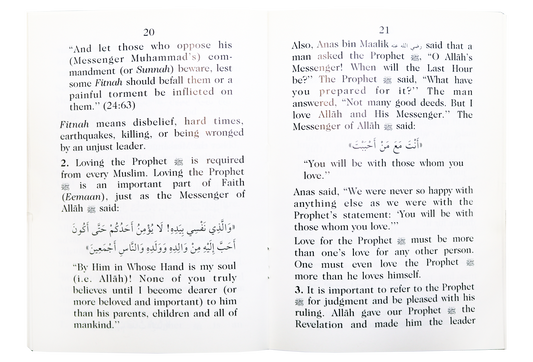 20
“And let those who oppose his
(Messenger Muhammad’s) com-
mandment (or Sunnah) beware, lest
some Fitnah should befall them or a
painful torment be inflicted on
them.” (24:63)
Fitnah means disbelief, hard times,
earthquakes, killing, or being wronged
by an unjust leader.
2. Loving the Prophet ﷺ is required
from every Muslim. Loving the Prophet
ﷺ is an important part of Faith
(Eemaan), just as the Messenger of
Allâh ﷺ said:
«وَالَّذِي نَفْسِي بِيَدِهِ! لَا يُؤْمِنُ أَحَدُكُمْ حَتَّى أَكُونَ
أَحَبَّ إِلَيْهِ مِنْ وَالِدِهِ وَوَلَدِهِ وَالنَّاسِ أَجْمَعِينَ»
“By Him in Whose Hand is my soul
(i.e. Allâh)! None of you truly
believes until I become dearer (or
more beloved and important) to him
than his parents, children and all of
mankind.”
21
Also, Anas bin Maalik رضي الله عنه said that a
man asked the Prophet ﷺ, “O Allâh’s
Messenger! When will the Last Hour
be?” The Prophet ﷺ said, “What have
you prepared for it?” The man
answered, “Not many good deeds. But I
love Allâh and His Messenger.” The
Messenger of Allâh ﷺ said:
«أَنْتَ مَعَ مَنْ أَحْبَبْتَ»
“You will be with those whom you
love.”
Anas said, “We were never so happy with
anything else as we were with the
Prophet’s statement: ‘You will be with
those whom you love.’”
Love for the Prophet ﷺ must be more
than one’s love for any other person.
One must even love the Prophet ﷺ
more than he loves himself.
3. It is important to refer to the Prophet
ﷺ for judgment and be pleased with his
ruling. Allâh gave our Prophet ﷺ the
Revelation and made him the leader